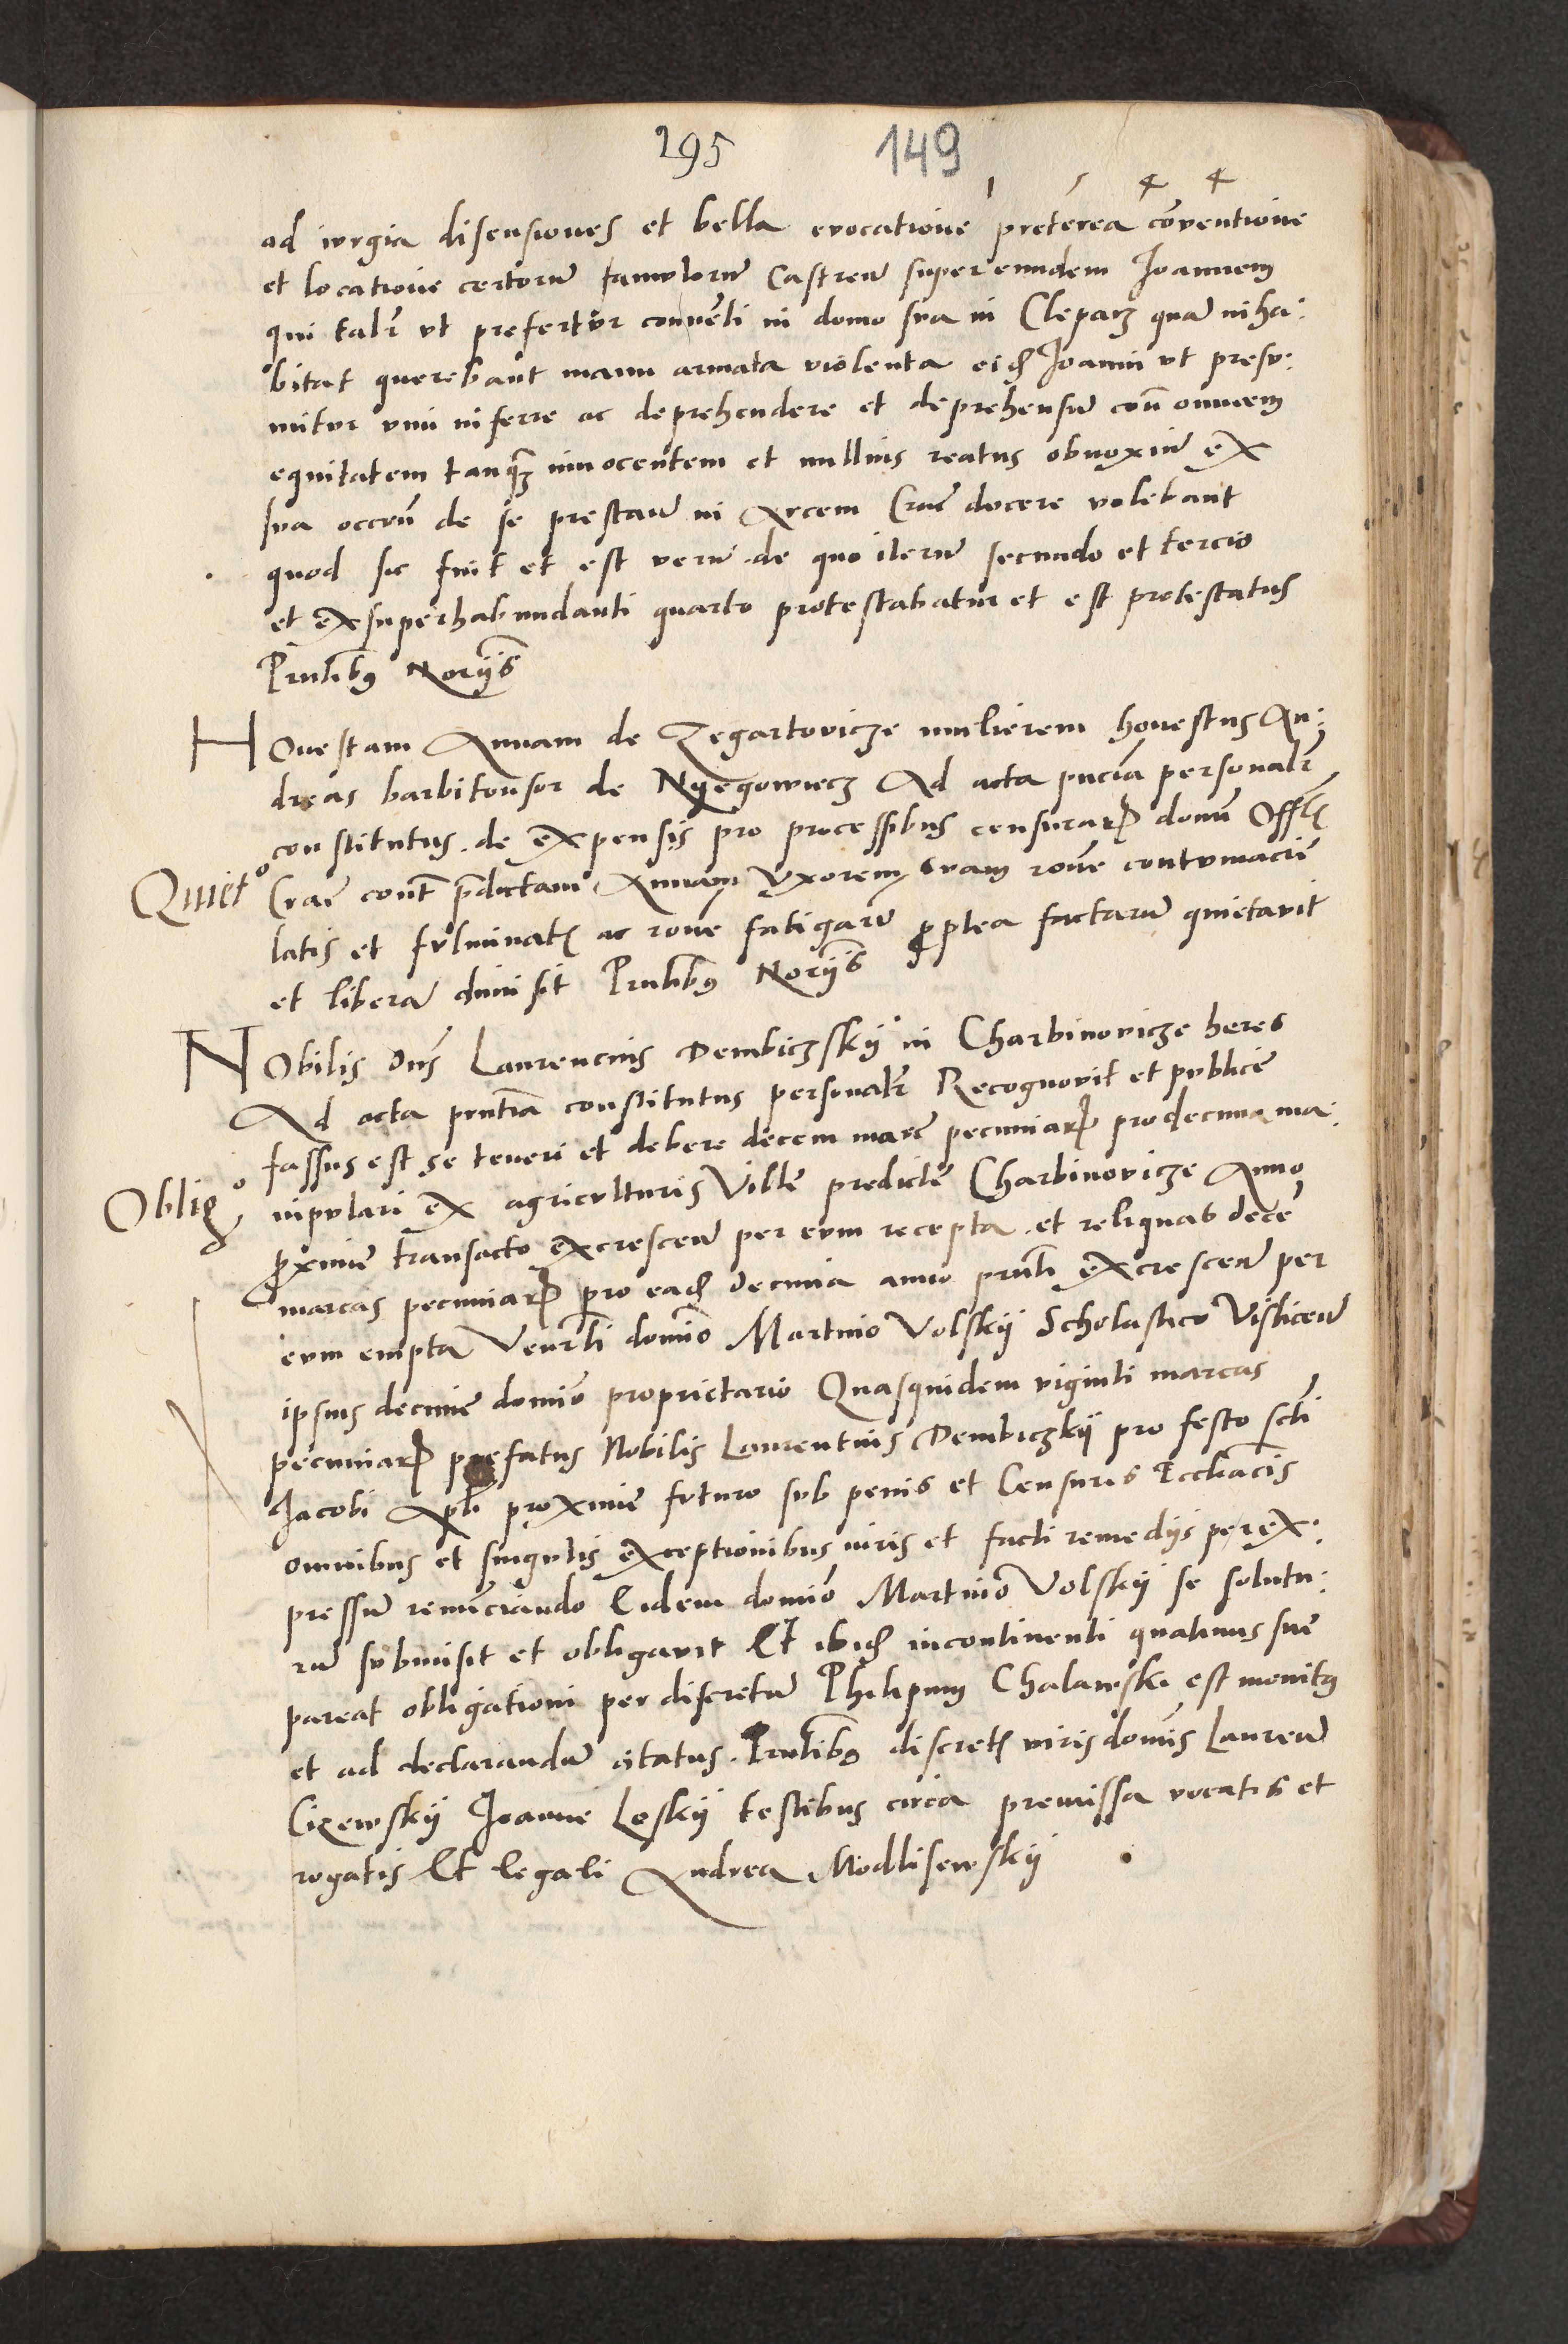 295 149
ad iurgia disensiones et bella evocatione preterea co̅ventione
et locatione certoru̅ famuloru̅ Castren̅ super eundem Joannem
qui talr̅ ut prefertur conve̅ti in domo sua in Cleparz qua̅ inha:
bitat querebant manu armata violenta eidꝫ Joanni ut presu:
mitur vim inferre ac deprehendere et deprehensu̅ con̅ omnem
equitatem tanqꝫ innocentem et nullius reatus obnoxiu̅ ex
sua occon̅ de se prestan̅ in Arcem Crac̅ docere volebant
quod sic fuit et est veru̅ de quo iteru̅ secundo et tercio
et ex superhabundanti quarto protestabatur et est protestatus
Pn̅tibꝰ Norijs
Honestam Annam de Zegartovicze mulierem honestus An:
dreas barbitonsor de Nyegowiecz Ad acta pn̅cia personalr̅
constitutus de expensis pro processibus censuraꝝ domi̅ Offlis̅
Quietº
Crac̅ cont̅ p̅dictam Annam Uxorem suam ro̅ne contumacie̅
latis et fulminatis ac ro̅ne fatigaru̅ ꝓpterea factaru̅ quietavit
et libera̅ dimisit Pn̅tibꝰ Norijs
Nobilis dn̅s Laurencius Dembiczskij in Charbinovicze heres
Ad acta pn̅tia constitutus personalr̅ Recognovit et publice
fassus est se teneri et debere decem marc̅ pecuniaꝝ pro decima ma:
Obligº
nipulari ex agriculturis Ville predicte Charbinovicze Anno
ꝓxime transacto excrescen̅ per eum recepta et reliquas dece̅
marcas pecuniaꝝ pro eadꝫ decima anno pn̅ti excrescen̅ per
eum empta Venr̅li domi̅o Martino Volskij Scholastico VisliceN̅
ipsius decime domi̅o proprietario Quasquidem viginti marcas
pecuniaꝝ prefatus Nobilis Laurentius Dembiczkij pro festo sc̅ti
Jacobi Apl̅i proxime futuro sub penis et Censuris Eccl̅iacis
omnibus et singulis exceptionibus iuris et facti remedijs per ex:
pressum renu̅ciando Eidem domi̅o Martino Volskij se solutu:
ru̅ submisit et obligavit Et ibidꝫ incontinenti quatinus sue
pareat obligationi per discretu̅ Philipum Chalawski est monitꝰ
et ad declarandu̅ citatus Pn̅tibꝰ discretis viris domi̅s Lauren̅
Cizewskij Joanne Leskij testibus circa premissa vocatis et
rogatis Et legali Andrea Modlisewskij